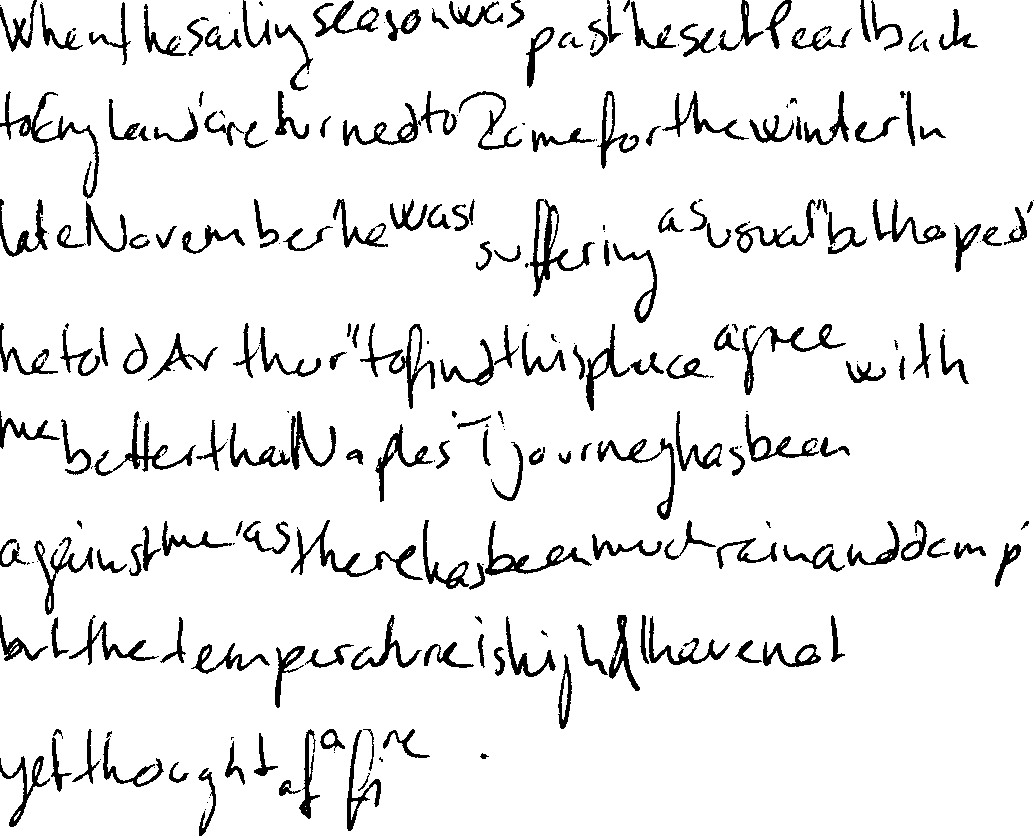 When the sailing season was past he sent Pearl back
to England, & returned to Rome for the winter. In
late November he was "suffering as usual" but hoped,
he told Arthur "to find this place agree with
me better than Naples. T journey has been
against me, as there has been much rain and damp,
but the temperature is high & I have not
yet thought of a fire .